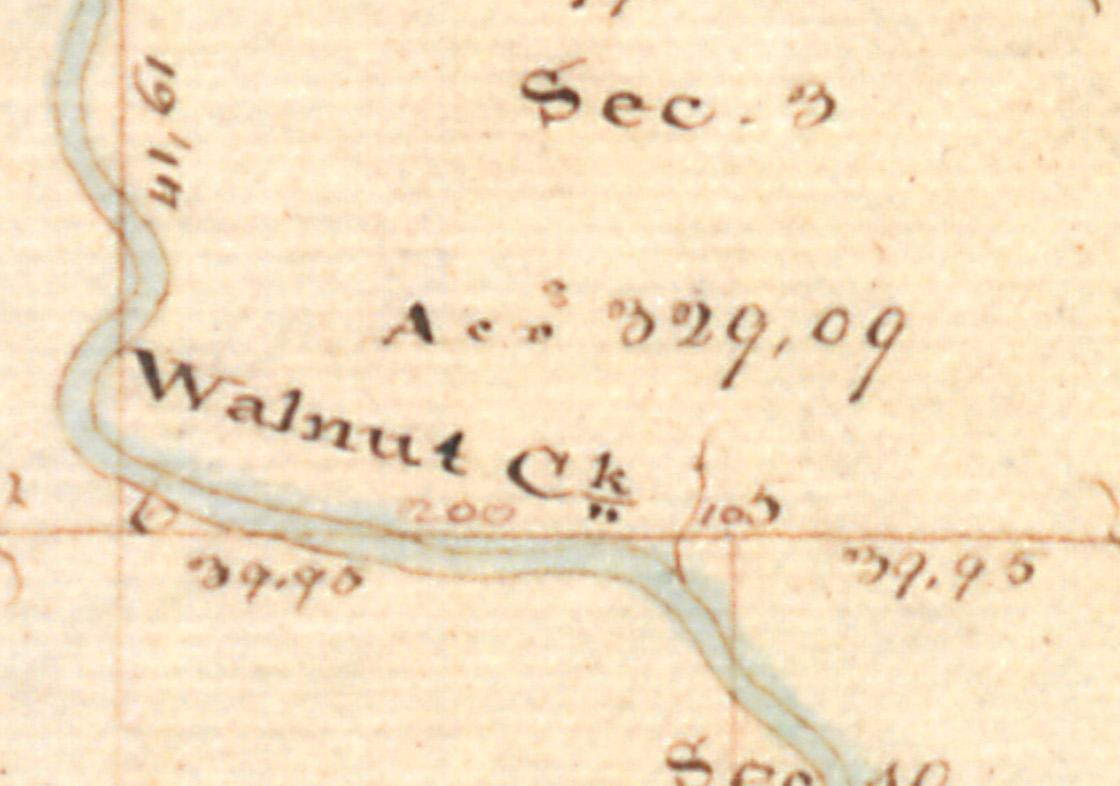 Sec. 3
41,61
Acrs 329,09
Walnut Ck
200
105
6
39.95
39.95
Sec